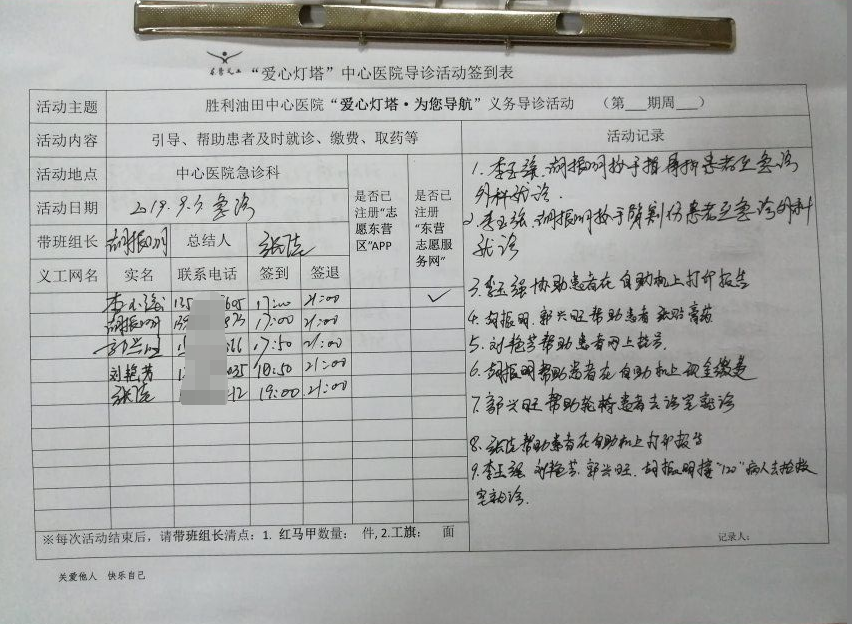 “爱心灯塔”中心医院导诊活动签到表
活动主题 胜利油田中心医院“爱心灯塔·为您导航”义务导诊活动 （第___期周___）
活动内容 引导、帮助患者及时就诊、缴费、取药等 活动记录
活动地点 中心医院急诊科 是否已注册“志愿东营区”APP 是否已注册“东营志愿服务网”
活动日期 2019.9.7 急诊
带班组长 胡振明 总结人 张洁
义工网名 实名 联系电话 签到 签退
李玉强 605 17:00 21:00 ✓
胡振明 17:00 21:00
郭兴旺 17:50 21:00
刘艳芳 035 18:50 21:00
张洁 12 19:00 21:00
1. 李玉强、胡振明 患者至急诊
外科就诊.
2. 李玉强、胡振明 患者至急诊外科
就诊
3. 李玉强协助患者在自助机上打印报告
4. 胡振明、郭兴旺帮助患者张贴膏药
5. 刘艳芳帮助患者网上挂号.
6. 胡振明帮助患者在自助机上现金缴费
7. 郭兴旺帮助轮椅患者去诊室就诊
8. 张洁帮助患者在自助机上打印报告
9. 李玉强 刘艳芳、郭兴旺、胡振明接“120”病人去抢救
室就诊.
※每次活动结束后，请带班组长清点：1. 红马甲数量： 件, 2.工旗： 面
记录人：
关爱他人 快乐自己